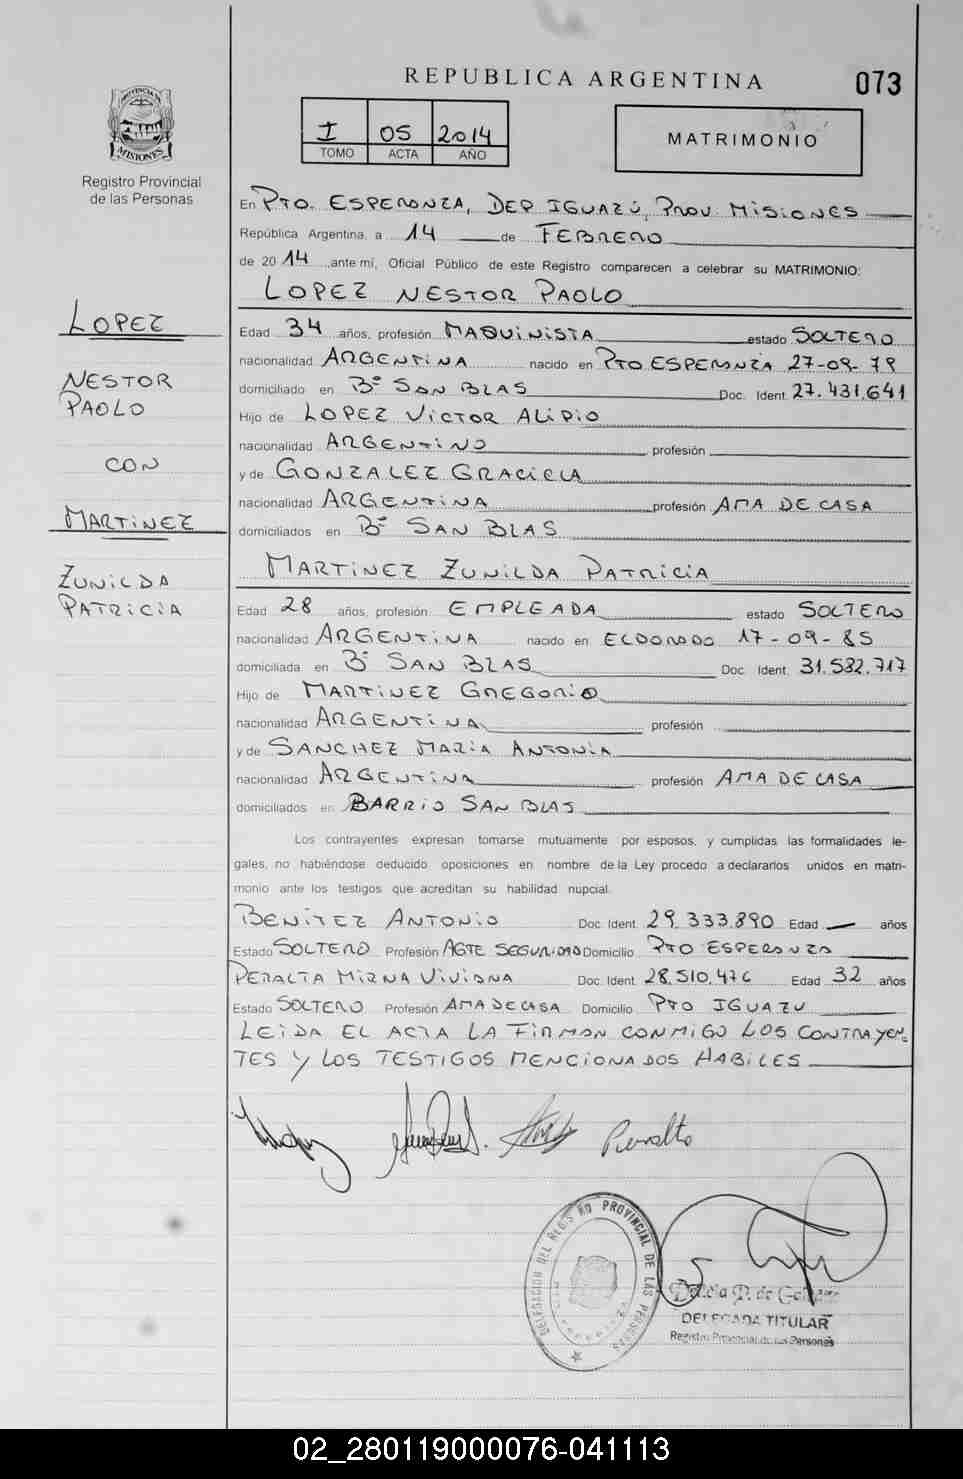 REPUBLICA ARGENTINA
073
PROVINCIA DE MISIONES
Registro Provincial
de las Personas
I 05 2014
TOMO ACTA AÑO
MATRIMONIO
En PTO. ESPERANZA, DEP IGUAZÚ, PROV. MISIONES
República Argentina, a 14 de FEBRERO
de 2014, ante mí, Oficial Público de este Registro comparecen a celebrar su MATRIMONIO:
LOPEZ NESTOR PAOLO
LOPEZ
NESTOR
PAOLO
CON
MARTINEZ
ZUNILDA
PATRICIA
Edad 34 años, profesión MAQUINISTA estado SOLTERO
nacionalidad ARGENTINA nacido en PTO ESPERANZA 27-09-79
domiciliado en Bº SAN BLAS Doc. Ident. 27.431.641
Hijo de LOPEZ VICTOR ALIPIO
nacionalidad ARGENTINO profesión
y de GONZALEZ GRACIELA
nacionalidad ARGENTINA profesión AMA DE CASA
domiciliados en Bº SAN BLAS
MARTINEZ ZUNILDA PATRICIA
Edad 28 años, profesión EMPLEADA estado SOLTERO
nacionalidad ARGENTINA nacido en ELDORADO 17-09-85
domiciliada en Bº SAN BLAS Doc. Ident. 31.582.717
Hijo de MARTINEZ GREGORIO
nacionalidad ARGENTINA profesión
y de SANCHEZ MARIA ANTONIA
nacionalidad ARGENTINA profesión AMA DE CASA
domiciliados en BARRIO SAN BLAS
Los contrayentes expresan tomarse mutuamente por esposos, y cumplidas las formalidades le-
gales, no habiéndose deducido oposiciones en nombre de la Ley procedo a declararlos unidos en matri-
monio ante los testigos que acreditan su habilidad nupcial.
BENITEZ ANTONIO Doc. Ident. 29.333.890 Edad — años
Estado SOLTERO Profesión AGTE SEGURIDAD Domicilio PTO ESPERANZA
PERALTA MIRNA VIVIANA Doc. Ident. 28.510.476 Edad 32 años
Estado SOLTERO Profesión AMA DE CASA Domicilio PTO IGUAZU
LEIDA EL ACTA LA FIRMAN CONMIGO LOS CONTRAYEN-
TES Y LOS TESTIGOS MENCIONADOS HABILES
Peralta
DELEGACION DEL REGISTRO PROVINCIAL DE LAS PERSONAS
DELEGADA TITULAR
Registro Provincial de las Personas
02_280119000076-041113